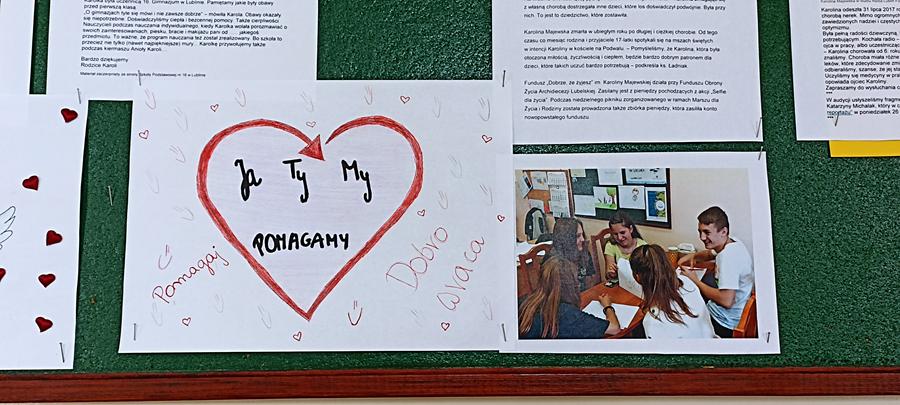 Karolina była uczennicą 16. Gimnazjum w Lublinie. Pamiętamy jakie były
przed pierwszą klasą.
„O gimnazjum źle się mówi i nie zawsze dobrze” – mówiła Karola. Obawy okazały
się niepotrzebne. Doświadczyliśmy ciepła i bezcennej pomocy. Także cierpliwości.
Nauczyciel podczas nauczania indywidualnego, kiedy Karolka wolała porozmawiać o
swoich zainteresowaniach, piesku, bracie i makijażu pani od ..... jakiegoś
przedmiotu. To ważne, że program nauczania też został zrealizowany. Bo szkoła to
przecież nie tylko (nawet najpiękniejsze) mury... Karolkę przywołujemy także
podczas kiermaszu Anioły Karoli.
Bardzo dziękujemy
Rodzice Karoli
z własną chorobą dostrzegała inne dzieci, które
nich. To jest to dziedzictwo, które zostawiła.
Karolina Majewska zmarła w ubiegłym roku po długiej i ciężkiej chorobie. Od tego
czasu co miesiąc rodzina i przyjaciele 17-latki spotykali się na mszach świętych
w intencji Karoliny w kościele na Podwalu. – Pomyśleliśmy, że Karolina, która była
otoczona miłością, opieką i ciepłem, będzie bardzo dobrym patronem dla
dzieci, które takich uczuć bardzo potrzebują – podkreśla ks. Ładniak.
Fundusz „Dobrze, że żyjesz” im. Karoliny Majewskiej działa przy Funduszu Obrony
Życia Archidiecezji Lubelskiej. Zasilany jest z pieniędzy pochodzących z akcji „Selfie
dla życia”. Podczas niedzielnego pikniku zorganizowanego w ramach Marszu dla
Życia i Rodziny została prowadzona także zbiórka pieniędzy, która zasiliła konto
nowopowstałego funduszu.
Karolina odeszła 31 lipca 2017
chorobą nerek. Mimo ogromnych
zawiedzionych nadziei i
optymizmu.
Była pełną radości dziewczyną,
potrzebującym. Kochała radio –
ojca w pracy, albo
– Karolina chorowała od 6. roku
znaliśmy. Choroba miała różne
leków, które zdecydowanie
odbieraliśmy, szanse, że jej
Uczyliśmy się medycyny w
opowiada ojciec Karoliny.
Zapraszamy do wysłuchania
***
W audycji usłyszeliśmy
Katarzyny Michalak, który w
reportażu” w poniedziałek 26
***
Ja Ty My
POMAGAMY
Pomagaj
Dobro
wraca